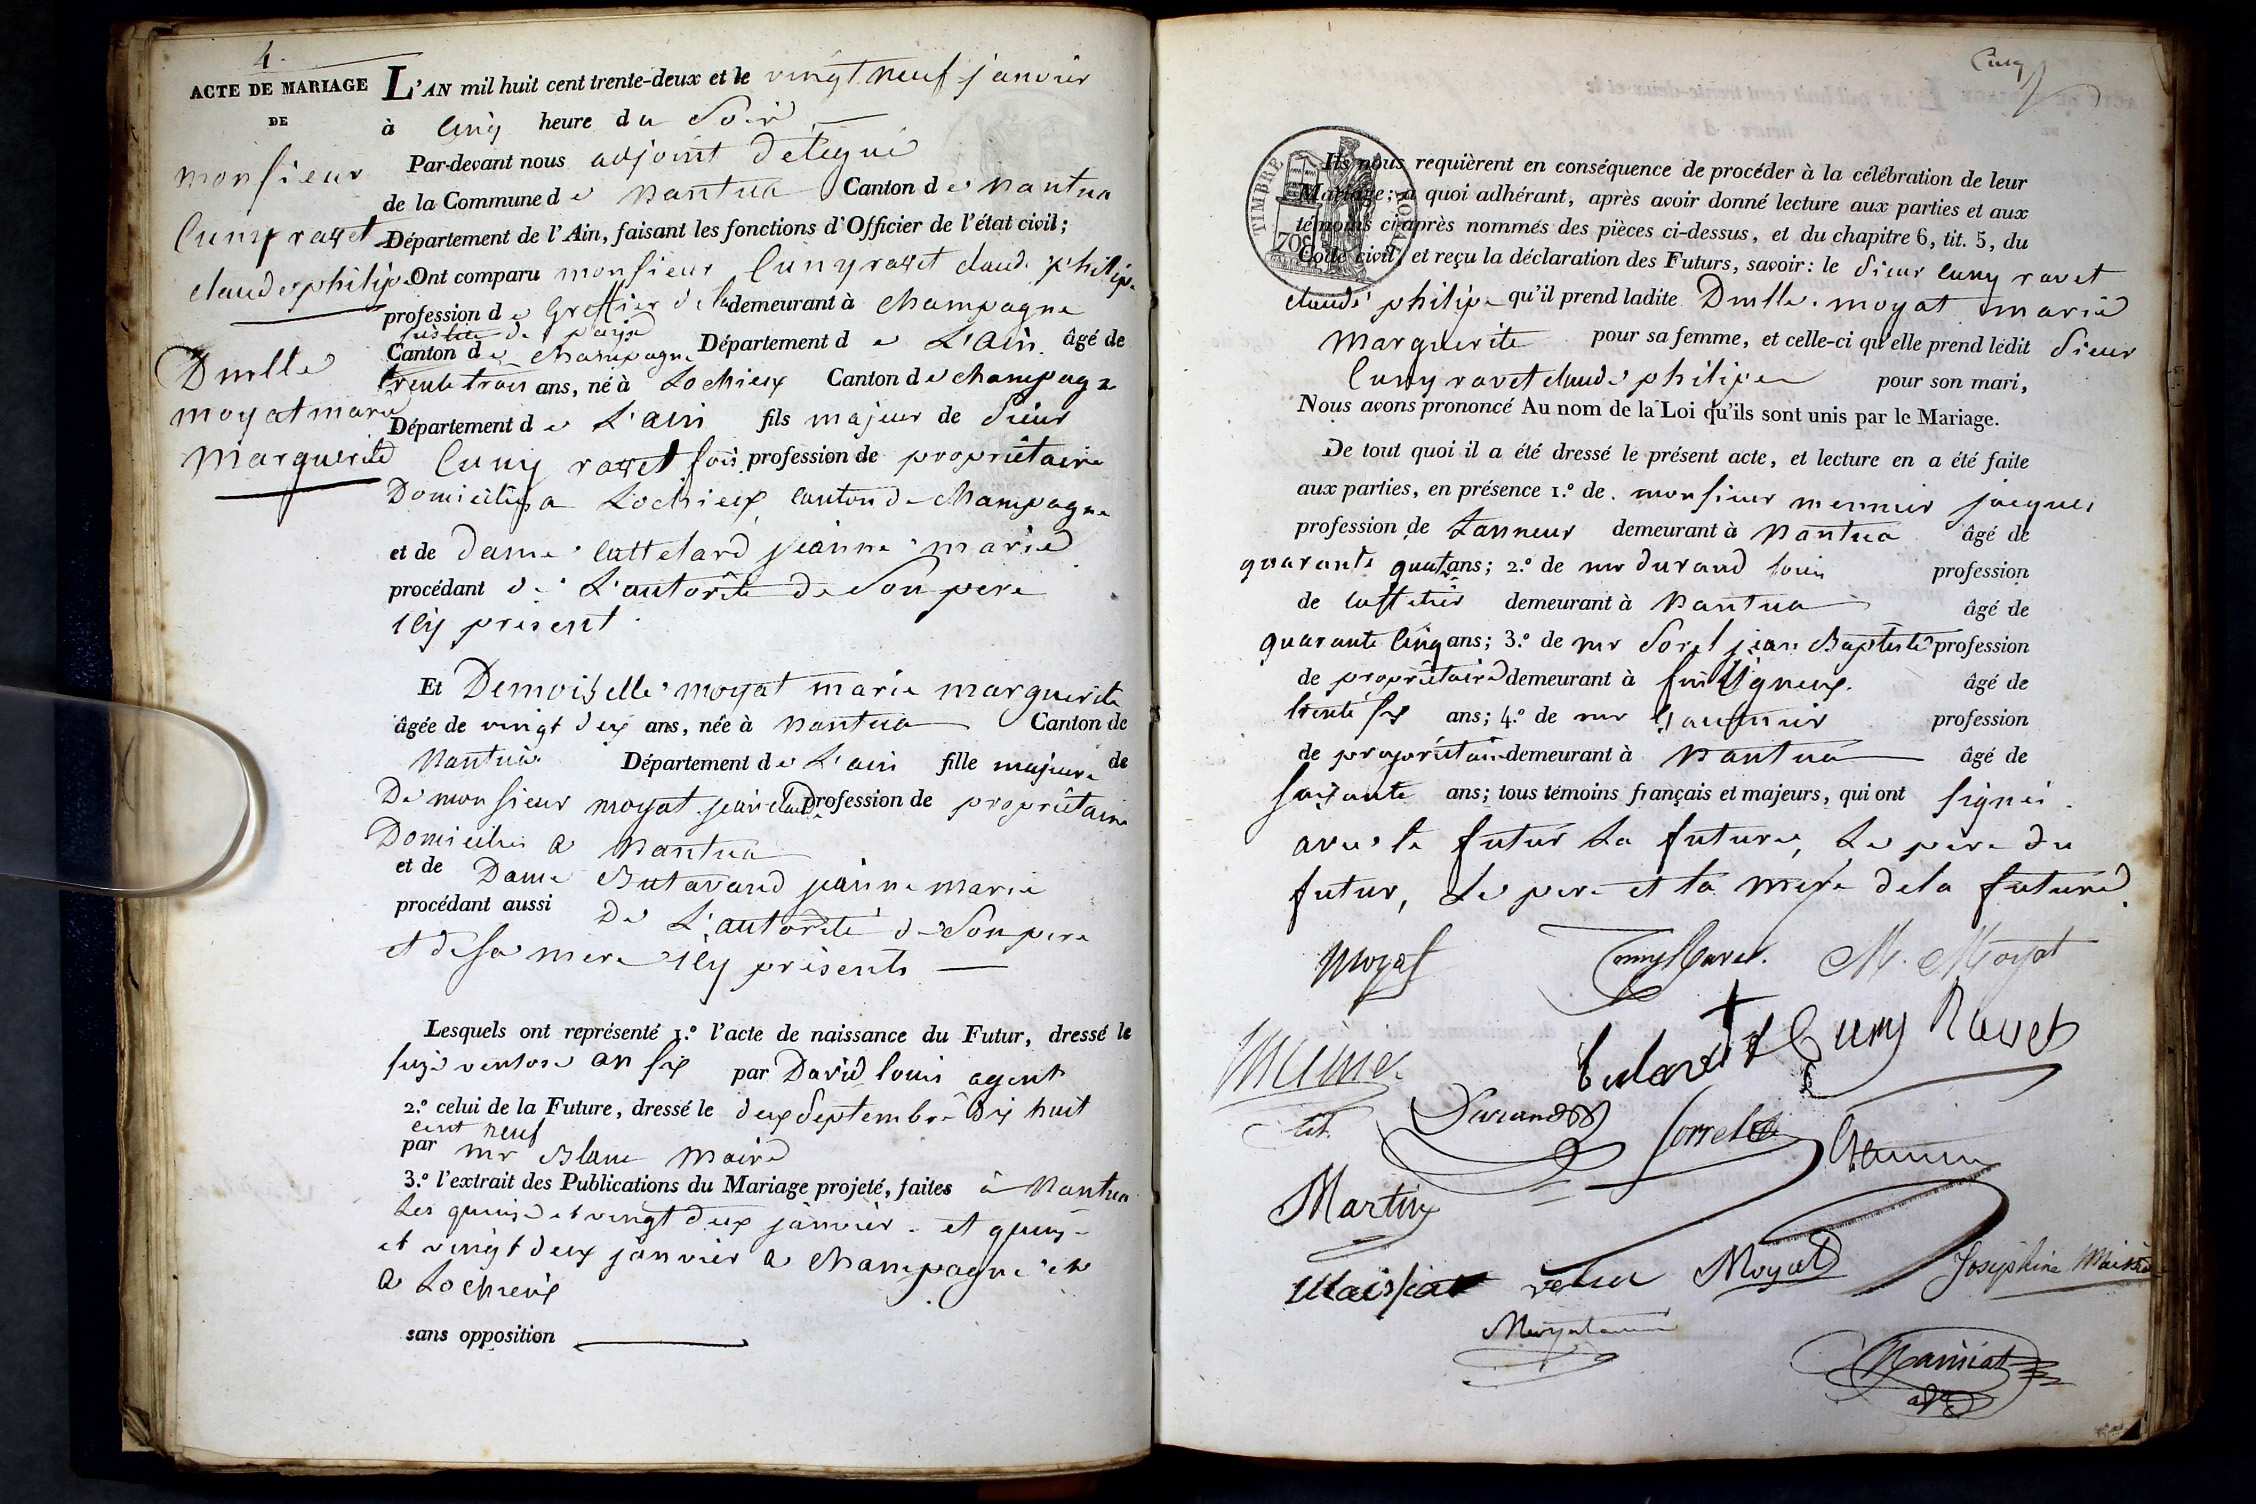 4.
ACTE DE MARIAGE
DE
monsieur
Cuny ravet
claude philipe
Dmlle
moyat marie
Marguerite
L'AN mil huit cent trente-deux et le vingt neuf janvier
à cinq heure du Soir
Par-devant nous adjoint délégué
de la Commune de Nantua Canton de Nantua
Département de l'Ain, faisant les fonctions d'Officier de l'état civil;
Ont comparu monsieur Cuny ravet claude philipe
profession de Greffier de la demeurant à Champagne
justice de paix
Canton de Champagne Département de L'Ain âgé de
trente trois ans, né à Lochieux Canton de Champagne
Département de L'ain fils majeur de Sieur
Cuny ravet profession de propriétaire
Domicilié a Lochieux canton de Champagne
et de dame Cattelard jeanne marie
procédant de L'autorité de Son pere
icy présent
Et Demoiselle moyat marie marguerite
âgée de vingt deux ans, née à Nantua Canton de
Nantua Département de L'ain fille majeure de
De monsieur moyat jean claude profession de propriétaire
Domicilié a Nantua
et de Dame Butavand jeanne marie
procédant aussi De L'autorité de Son pere
et de Sa mere icy présents
Lesquels ont représenté 1.º l'acte de naissance du Futur, dressé le
seize ventose an six par David louis agent
2.º celui de la Future, dressé le deux Septembre dix huit
cent neuf
par mr Blanc Maire
3.º l'extrait des Publications du Mariage projeté, faites à Nantua
Les quinze et vingt deux janvier et quinze
et vingt deux janvier a Champagne et
a Lochieux
sans opposition
TIMBRE ROYAL
70c
Ils nous requièrent en conséquence de procéder à la célébration de leur
Mariage; à quoi adhérant, après avoir donné lecture aux parties et aux
témoins ci-après nommés des pièces ci-dessus, et du chapitre 6, tit. 5, du
Code civil, et reçu la déclaration des Futurs, savoir: le Sieur Cuny ravet
claude philipe qu'il prend ladite Dmlle. moyat marie
Marguerite pour sa femme, et celle-ci qu'elle prend ledit Sieur
Cuny ravet claude philipe pour son mari,
Nous avons prononcé Au nom de la Loi qu'ils sont unis par le Mariage.
De tout quoi il a été dressé le présent acte, et lecture en a été faite
aux parties, en présence 1.º de monsieur jacques
profession de Tanneur demeurant à Nantua âgé de
quarante quatre ans; 2.º de mr durand louis profession
de caffetier demeurant à Nantua âgé de
quarante cinq ans; 3.º de mr Sorel jean Baptiste profession
de propriétaire demeurant à âgé de
trente six ans; 4.º de mr profession
de propriétaire demeurant à Nantua âgé de
soixante ans; tous témoins français et majeurs, qui ont signés
avec le futur La future, Le pere du
futur, Le pere et la mere de la future.
Moyat Cuny Ravet. M. Moyat
Cuny Ravet
Durand Sorrel
Martin
Moyat Joséphine